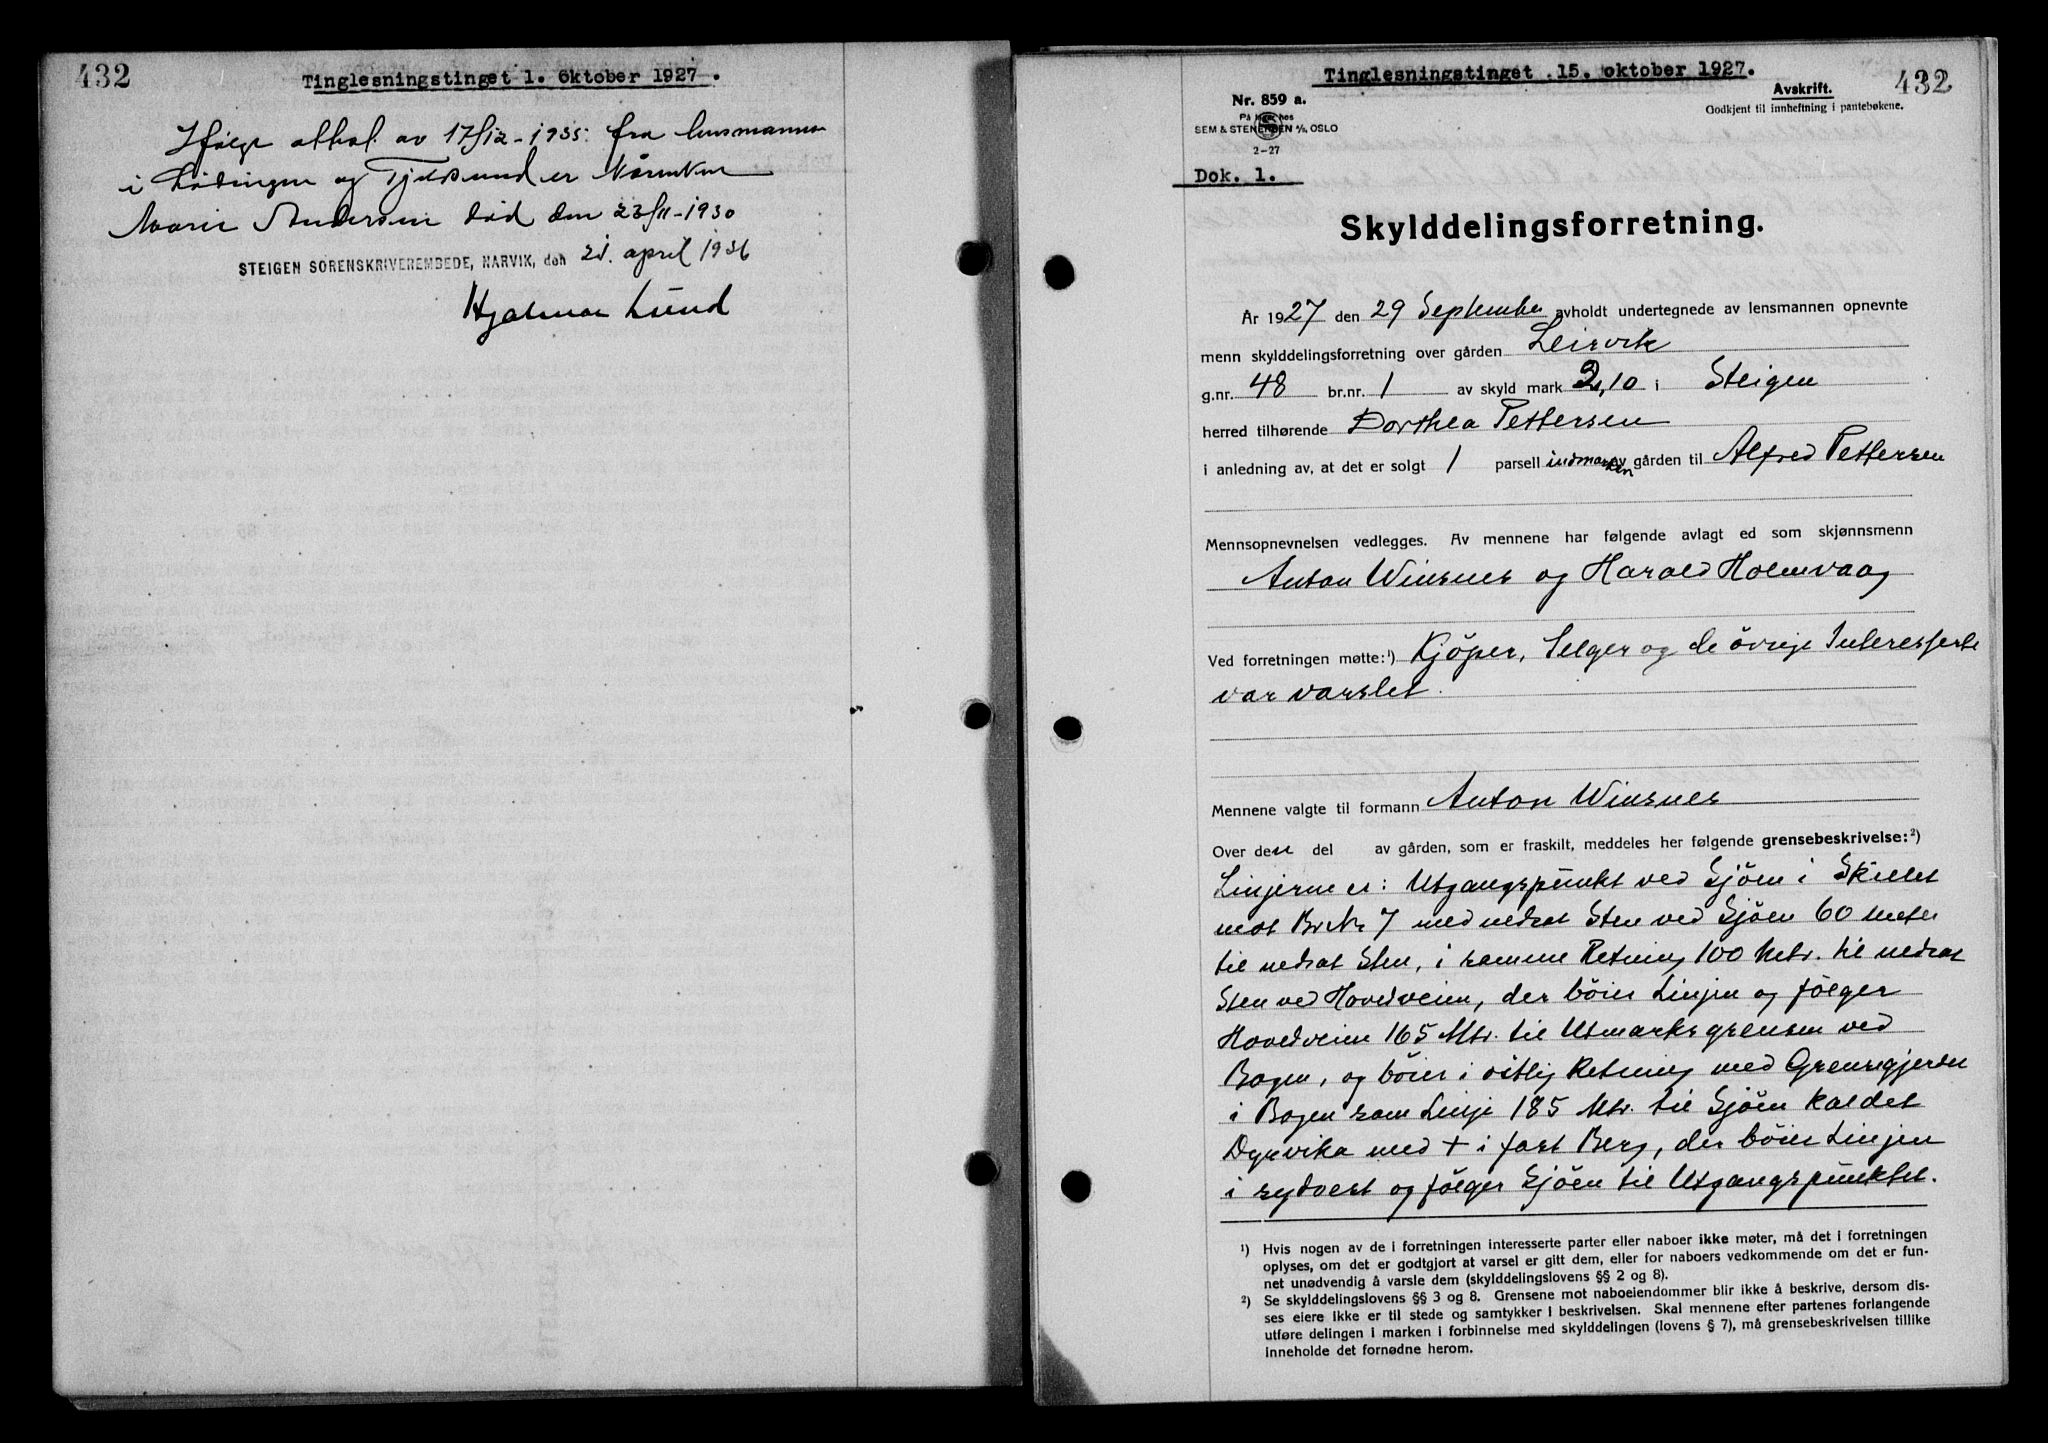 432
Tinglesningstinget 1. oktober 1927.
Ifølge attest av 17/12-1935 fra lensmannen
i Lødingen og Tjeldsund er
Marie Andersen død den 23/11-1930
STEIGEN SORENSKRIVEREMBEDE, NARVIK, den 21. april 1936
Hjalmar Lund
Tinglesningstinget 15. oktober 1927.
432
Nr. 859 a.
Avskrift.
Godkjent til innheftning i pantebøkene.
På lager hos
SEM & STENERSEN A/S, OSLO
2-27
Dok. 1.
Skylddelingsforretning.
År 1927 den 29 September avholdt undertegnede av lensmannen opnevnte
menn skylddelingsforretning over gården Leirvik
g.nr. 48 br.nr. 1 av skyld mark 2,10 i Steigen
herred tilhørende Dorthea Pettersen
i anledning av, at det er solgt 1 parsell indmarken av gården til Alfred Pettersen
Mennsopnevnelsen vedlegges. Av mennene har følgende avlagt ed som skjønnsmenn
Anton Winsnes og Harald Holmvaag
Ved forretningen møtte:¹) Kjöper, Selger og de övrige Interesserte
var varslet.
Mennene valgte til formann Anton Winsnes
Over den del av gården, som er fraskilt, meddeles her følgende grensebeskrivelse:²)
Linjerne er: Utgangspunkt ved Sjöen i Skillet
mot Br Nr 7 med nedsat Sten ved Sjöen 60 meter
til nedsat Sten, i samme Retning 100 Mtr. til nedsat
Sten ved Hovedveien, der böier Linjen og fölger
Hovedveien 165 Mtr. til Utmarksgrensen ved
Bogen, og böier i östlig Retning med Grensegjerdet
i Bogen som Linje 185 Mtr. til Sjöen kaldet
Dyrvika med + i fast Berg, der böier Linjen
i sydvest og fölger Sjöen til Utgangspunktet.
¹) Hvis nogen av de i forretningen interesserte parter eller naboer ikke møter, må det i forretningen
oplyses, om det er godtgjort at varsel er gitt dem, eller for naboers vedkommende om det er fun-
net unødvendig å varsle dem (skylddelingslovens §§ 2 og 8).
²) Se skylddelingslovens §§ 3 og 8. Grensene mot naboeiendommer blir ikke å beskrive, dersom dis-
ses eiere ikke er til stede og samtykker i beskrivelsen. Skal mennene efter partenes forlangende
utføre delingen i marken i forbinnelse med skylddelingen (lovens § 7), må grensebeskrivelsen tillike
inneholde det fornødne herom.